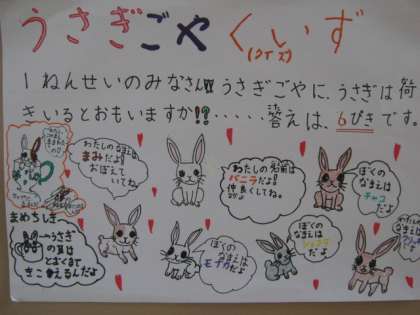 うさぎごや くいず
(クイズ)
1ねんせいのみなさん!!うさぎごやに、うさぎは何
きいるとおもいますか!?‥‥‥答えは、6ぴきです。
わたしのなまえは
まみだよ!
おぼえて
いてね。
わたしの名前は
バニラだよ!
仲良くしてね。
ぼくの
なまえは
チャコ
だよ
まめちしき
うさぎ
の耳は
とおくまで
きこえるんだよ
ぼくの
なまえは
モチカ
だよ
ぼくの
なまえは
だよ
ぼくの
なまえは